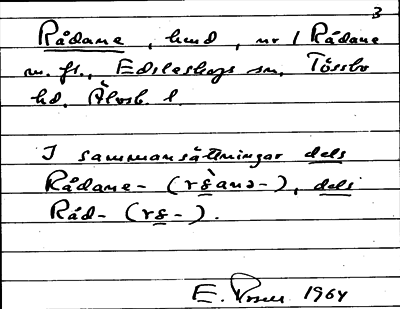 3
Rådane, hmd, nr 1 Rådane
m. fl., Edsleskogs sn, Tössbo
hd, Älvsb. l.
I sammansättningar dels
Rådane- (råanə-), dels
Råd- (rå-).
E. 1964